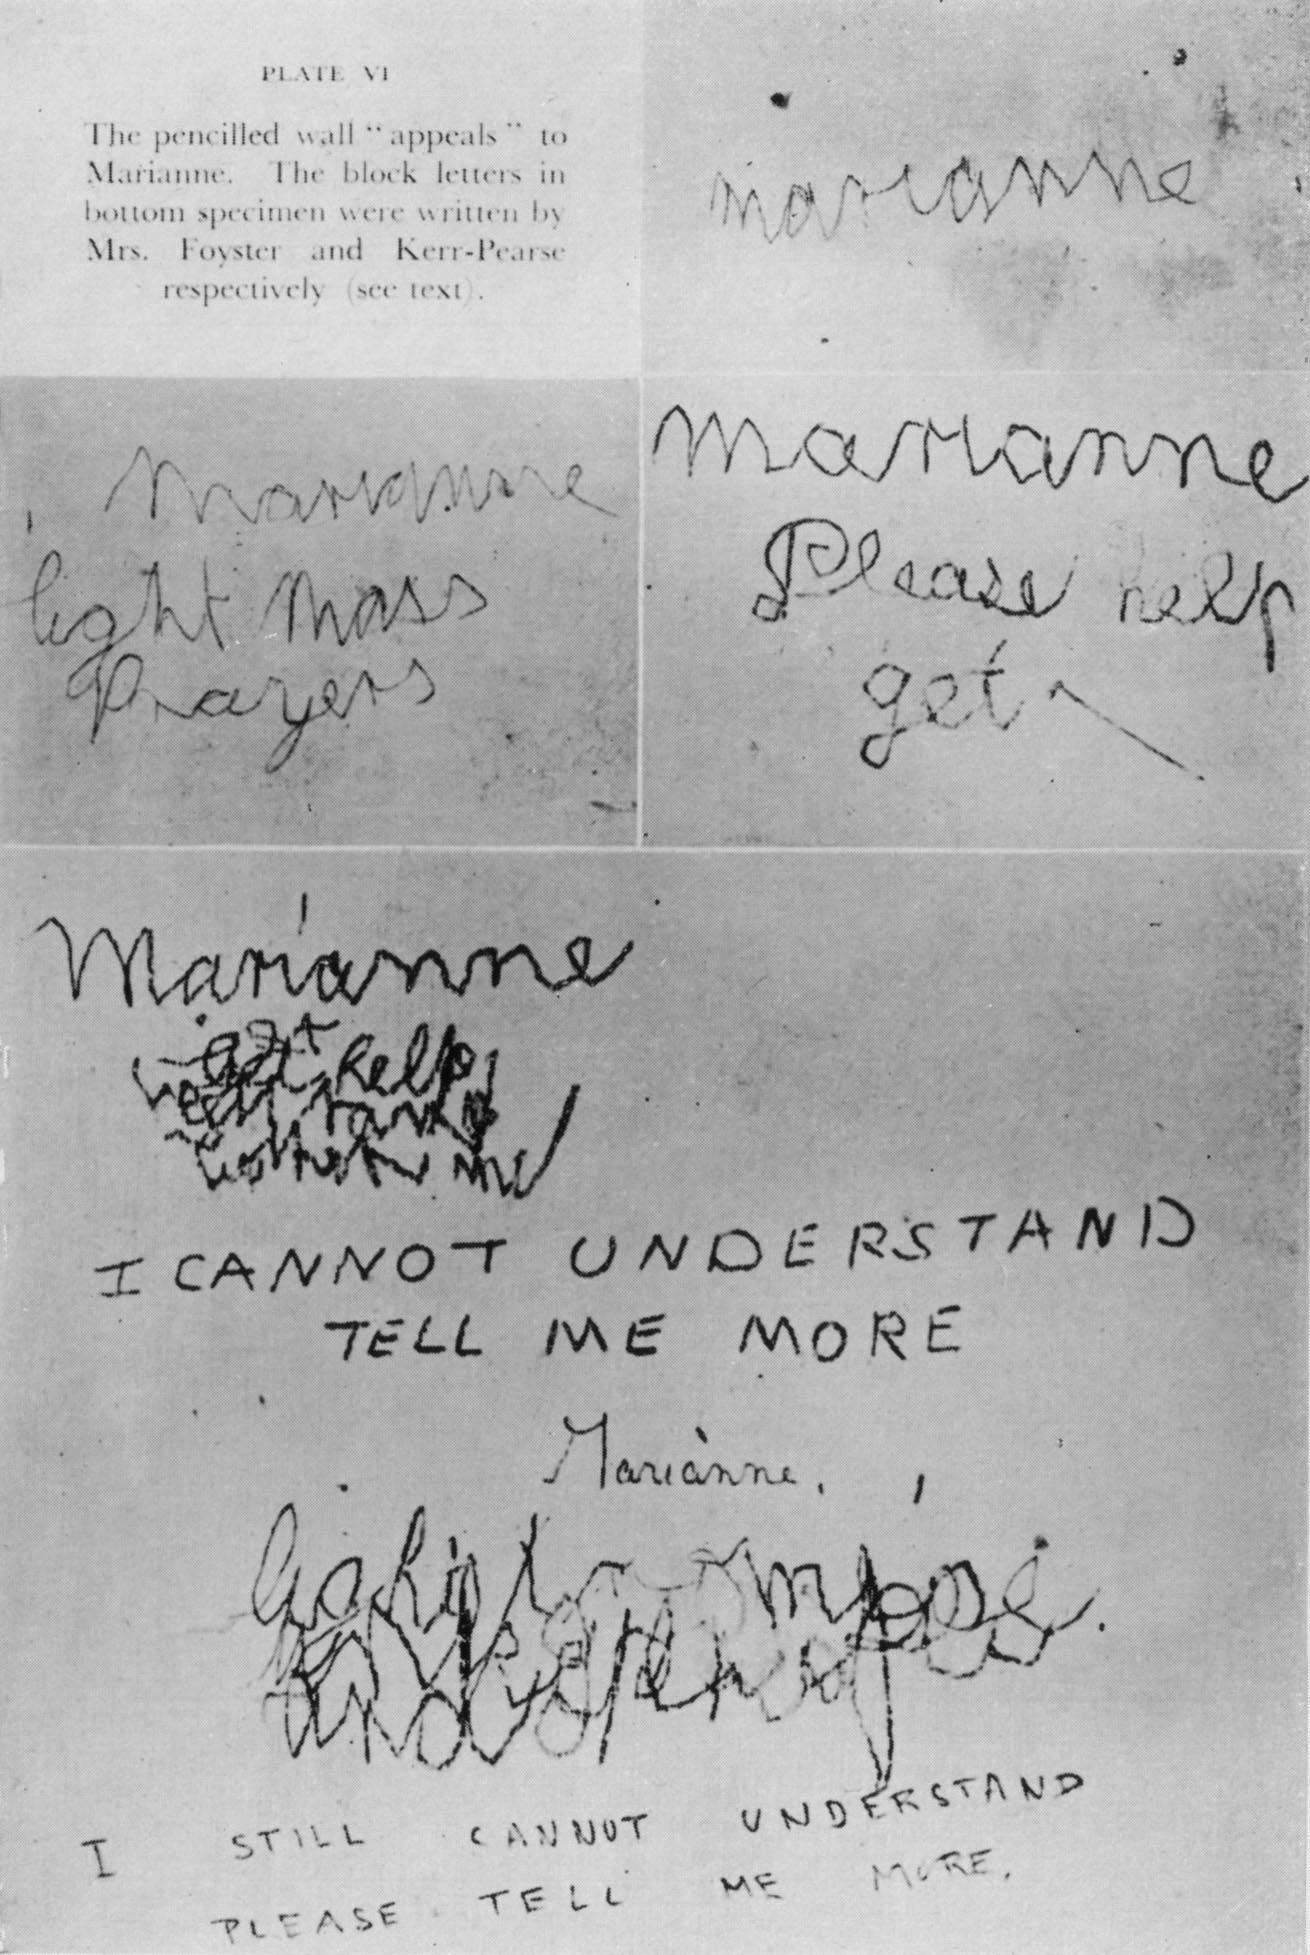 PLATE VI
The pencilled wall "appeals" to
Marianne. The block letters in
bottom specimen were written by
Mrs. Foyster and Kerr-Pearse
respectively (see text).
marianne
Marianne
light Mass
Prayers
Marianne
Please help
get
Marianne
get help
me
I CANNOT UNDERSTAND
TELL ME MORE
Marianne.
I STILL CANNOT UNDERSTAND
PLEASE TELL ME MORE.